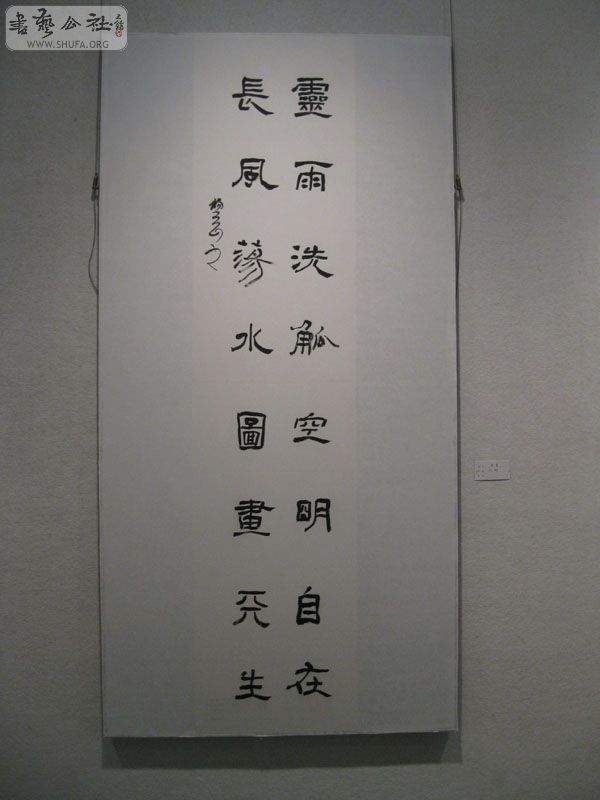 書藝公社
WWW.SHUFA.ORG
靈雨洗觚空明自在
長風蕩水圖畫天生